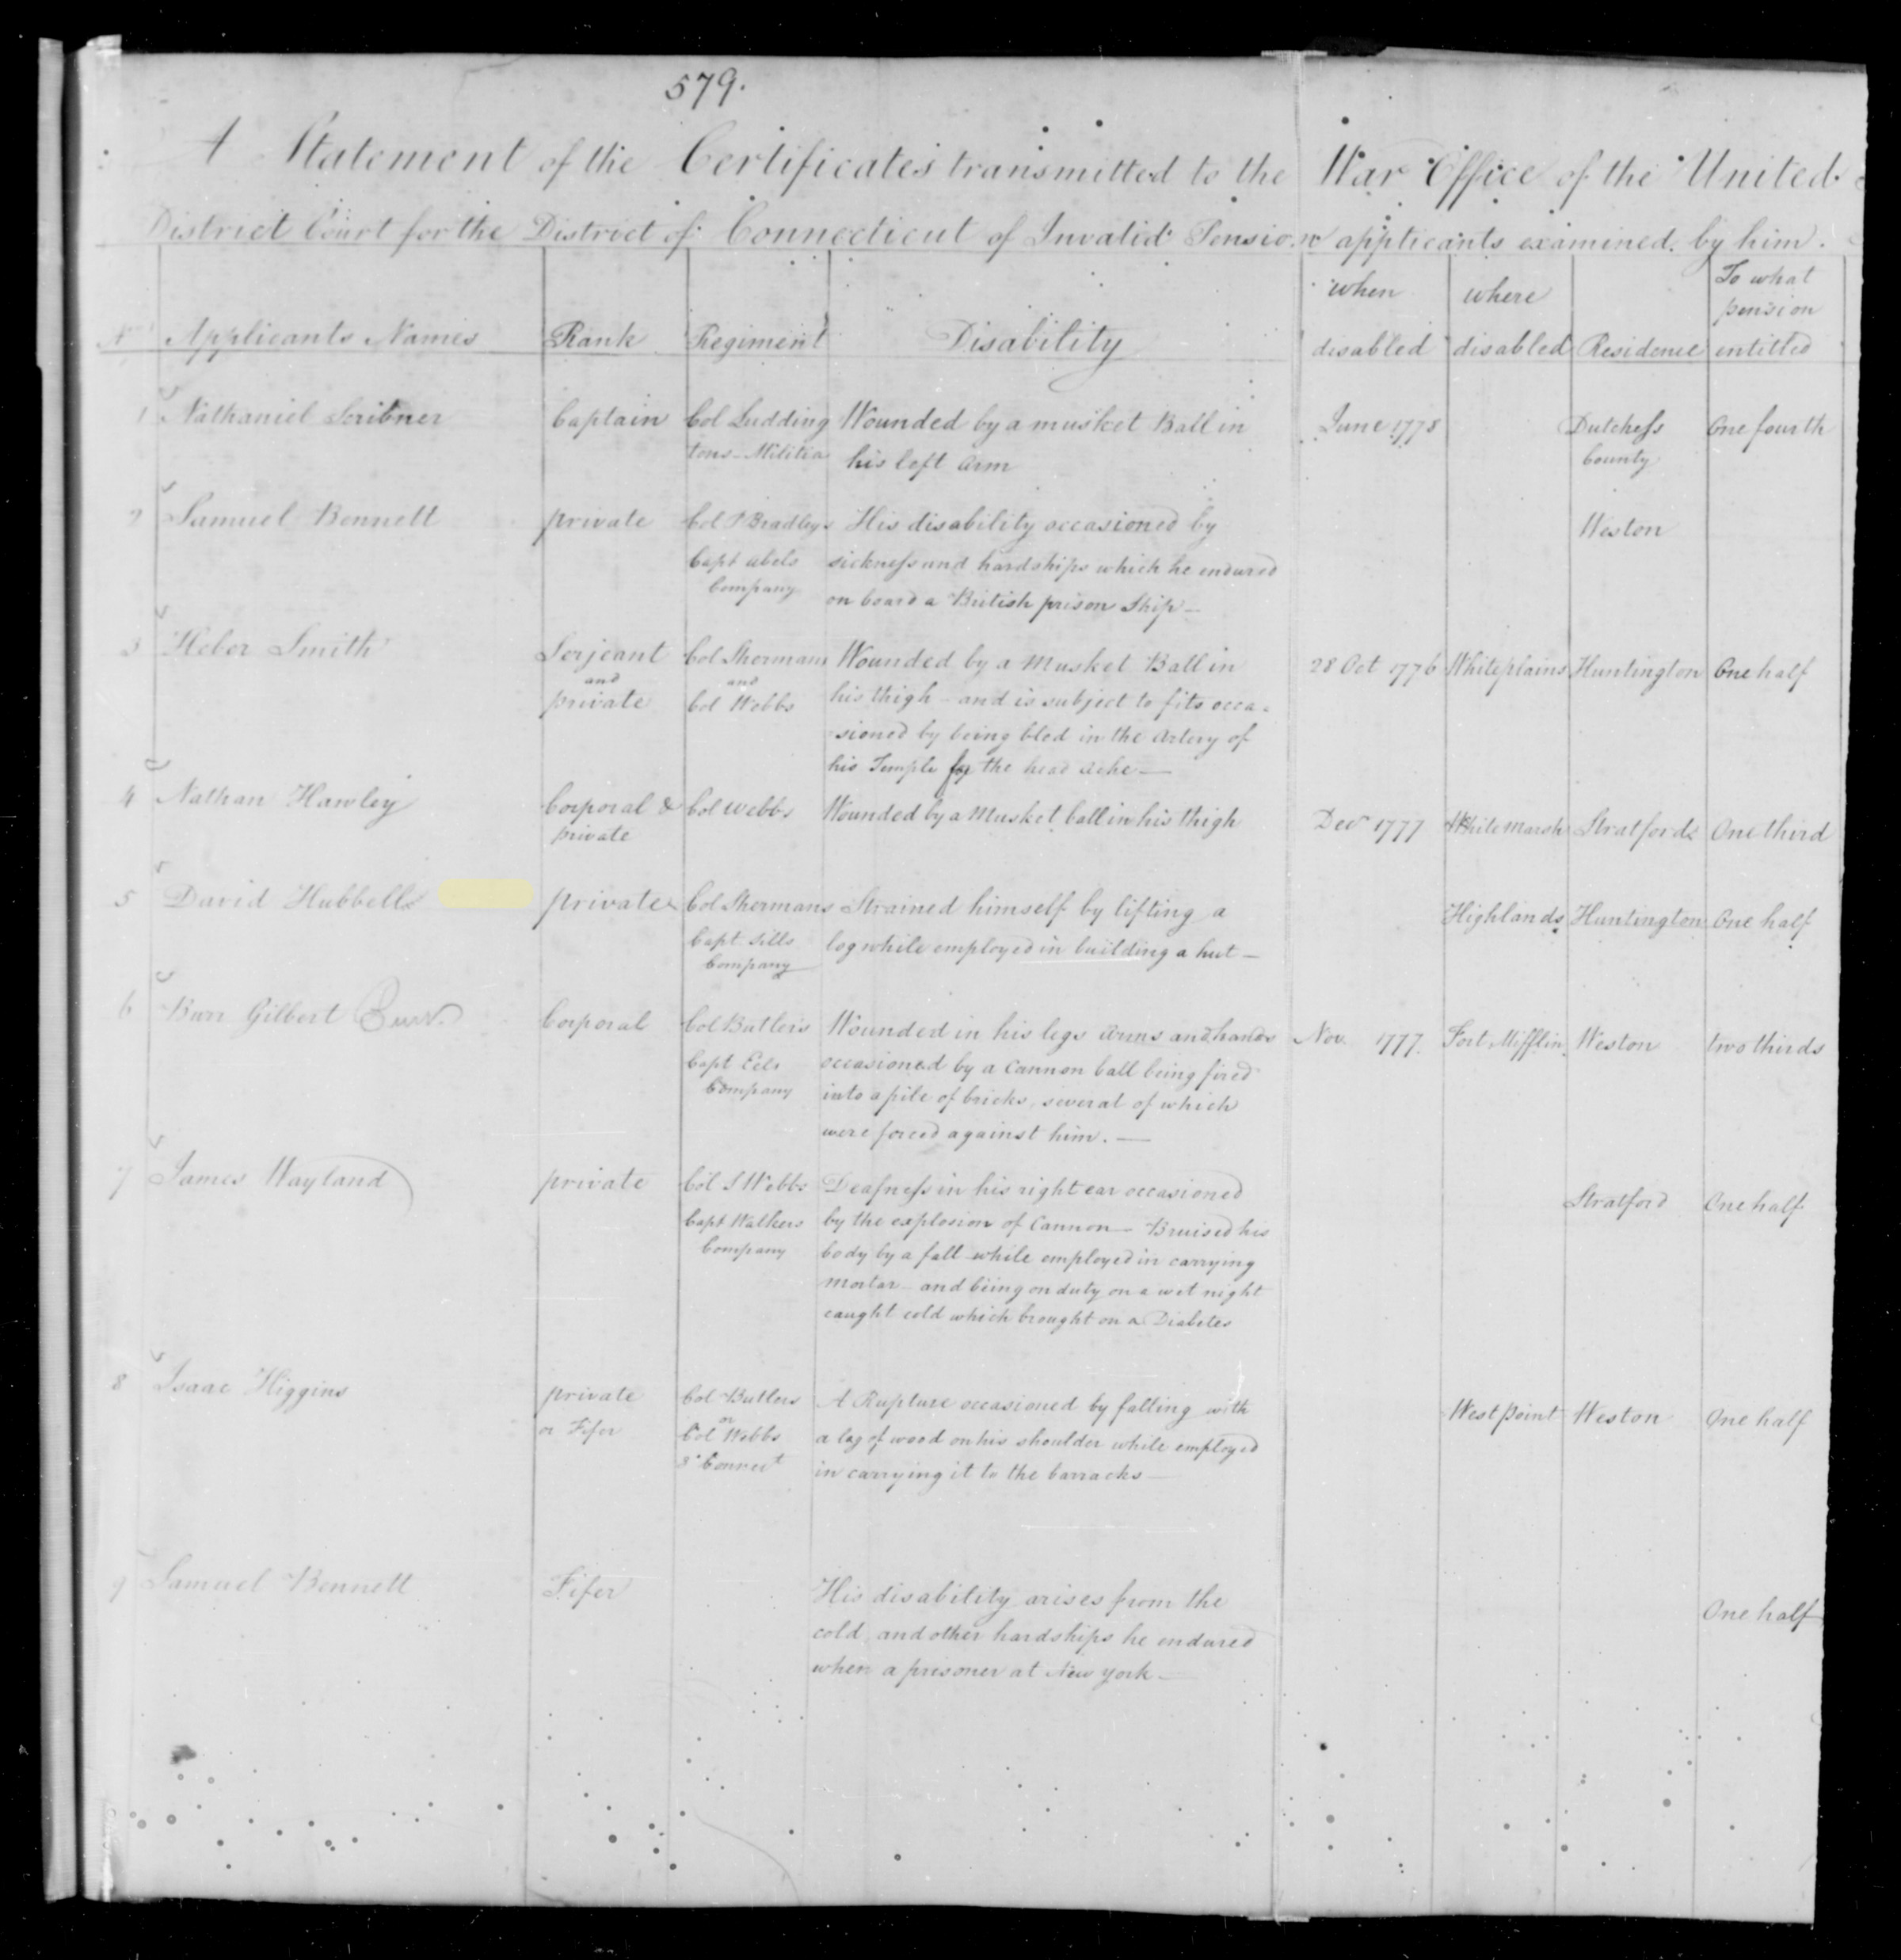 579.
A Statement of the Certificates transmitted to the War Office of the United
District Court for the District of Connecticut of Invalid Pension applicants examined by him.
Applicants Names Rank Regiment Disability when disabled where disabled Residence To what pension entitled
1 Nathaniel Scribner Captain Col Ludding Wounded by a musket Ball in June 1778 Dutchess One fourth
tons Militia his left Arm County
2 Samuel Bennett private Col P Bradleys His disability occasioned by Weston
Capt Abels sickness and hardships which he endured
Company on board a British prison Ship —
3 Heber Smith Serjeant Col Shermans Wounded by a Musket Ball in 28 Oct 1776 Whiteplains Huntington One half
and and
private Col Webbs his thigh - and is subject to fits occa=
=sioned by being bled in the Artery of
his Temple for the head Ache —
4 Nathan Hawley Corporal & Col Webbs Wounded by a Musket ball in his thigh Decr 1777 Whitemarsh Stratford One third
private
5 David Hubbell private Col Shermans Strained himself by lifting a Highlands Huntington One half
Capt Sills log while employed in building a hut —
Company
6 Burr Gilbert Burr Corporal Col Butlers Wounded in his legs Arms and hands Nov. 1777. Fort Mifflin Weston two thirds
Capt Eels occasioned by a Cannon ball being fired
Company into a pile of bricks, several of which
were forced against him. —
7 James Wayland private Col S Webbs Deafness in his right ear occasioned Stratford One half
Capt Walkers by the explosion of Cannon — Bruised his
Company body by a fall while employed in carrying
mortar and being on duty on a wet night
caught cold which brought on a Diabetes
8 Isaac Higgins private Col Butlers A Rupture occasioned by falling with West point Weston One half
or Fifer or
Col Webbs a log of wood on his shoulder while employed
3d Connect in carrying it to the barracks —
9 Samuel Bennett Fifer His disability arises from the One half
cold and other hardships he endured
when a prisoner at New york —